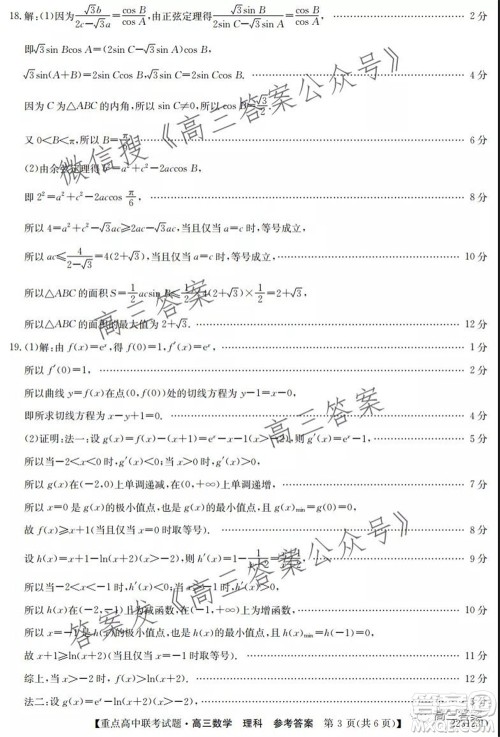 18.解:(1)因为√3b/(2c-√3a)=cos B/cos A,由正弦定理得√3sin B/(2sin C-√3sin A)=cos B/cos A, 2分
即√3sin Bcos A=(2sin C-√3sin A)cos B,
√3sin(A+B)=2sin Ccos B,√3sin C=2sin Ccos B, 4分
因为 C 为△ABC 的内角,所以 sin C≠0,所以 cos B=√3/2,
又 0<B<π,所以 B=π/6. 6分
(2)由余弦定理得b²=a²+c²-2accos B,
即 2²=a²+c²-2accos π/6, 8分
所以 4=a²+c²-√3ac≥2ac-√3ac,当且仅当 a=c 时,等号成立,
所以 ac≤4/(2-√3)=4(2+√3),当且仅当 a=c 时,等号成立, 10分
所以△ABC 的面积 S=1/2acsin B≤1/2×4(2+√3)×1/2=2+√3.
所以△ABC 的面积的最大值为 2+√3. 12分
19.(1)解:由 f(x)=eˣ,得 f(0)=1,f′(x)=eˣ, 1分
所以 f′(0)=1, 2分
所以曲线 y=f(x)在点(0,f(0))处的切线方程为 y-1=x-0,
即所求切线方程为 x-y+1=0. 4分
(2)证明:法一:设 g(x)=f(x)-(x+1)=eˣ-x-1(x>-2),则 g′(x)=eˣ-1, 5分
所以当-2<x<0 时,g′(x)<0;当 x>0 时,g′(x)>0,
所以 g(x)在(-2,0)上单调递减,在(0,+∞)上单调递增, 7分
所以 x=0 是 g(x)的极小值点,也是 g(x)的最小值点,且 g(x)min=g(0)=0,
故 f(x)≥x+1(当且仅当 x=0 时取等号). 8分
设 h(x)=x+1-ln(x+2)(x>-2),则 h′(x)=1-1/(x+2)=(x+1)/(x+2), 9分
所以当-2<x<-1 时,h′(x)<0;当 x>-1 时,h′(x)>0,
所以 h(x)在(-2,-1)上为减函数,在(-1,+∞)上为增函数, 10分
所以 x=-1 是 h(x)的极小值点,也是 h(x)的最小值点,且 h(x)min=h(-1)=0,
故 x+1≥ln(x+2)(当且仅当 x=-1 时取等号). 11分
综上,当 x>-2 时,f(x)>ln(x+2). 12分
法二:设 g(x)=f(x)-ln(x+2)=eˣ-ln(x+2)(x>-2),
【重点高中联考试题·高三数学 理科 参考答案 第3页(共6页)】
微信搜《高三答案公众号》
高三答案
高三答案
答案发《高三答案公众号》
高三答案